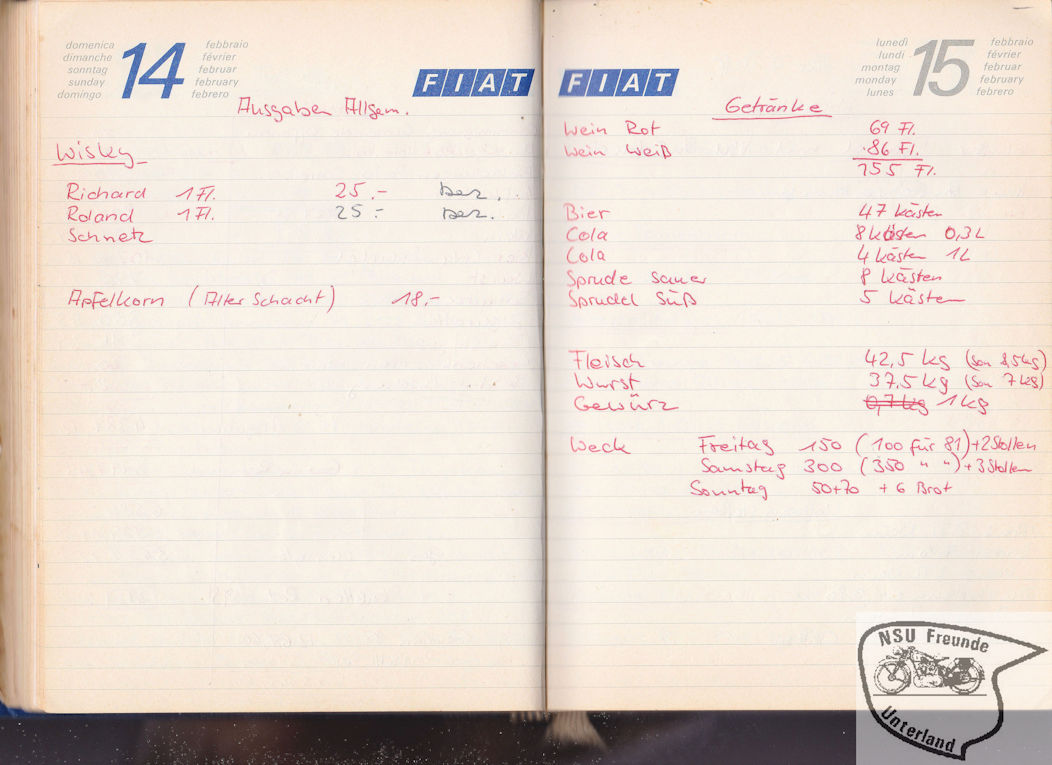 domenica febbraio
dimanche février
sonntag februar
sunday february
domingo febrero
14
FIAT
Ausgaben Allgem.
Wisky
Richard 1 Fl. 25.- bez.
Roland 1 Fl. 25.- bez.
Schnetz
Apfelkorn (Alter Schacht) 18,-
lunedì febbraio
lundi février
montag februar
monday february
lunes febrero
15
FIAT
Getränke
Wein Rot 69 Fl.
Wein Weiß 86 Fl.
155 Fl.
Bier 47 Kästen
Cola 8 Kästen 0,3 L
Cola 4 Kästen 1L
Sprude Sauer 8 Kästen
Sprudel Süß 5 Kästen
Fleisch 42,5 kg (Son 8,5 kg)
Wurst 37,5 kg (Son 7 kg)
Gewürz 0,7 kg 1 kg
Weck Freitag 150 (100 für 81) + 2 Stollen
Samstag 300 (350 " ") + 3 Stollen
Sonntag 50+70 + 6 Brot
NSU Freunde
Unterland